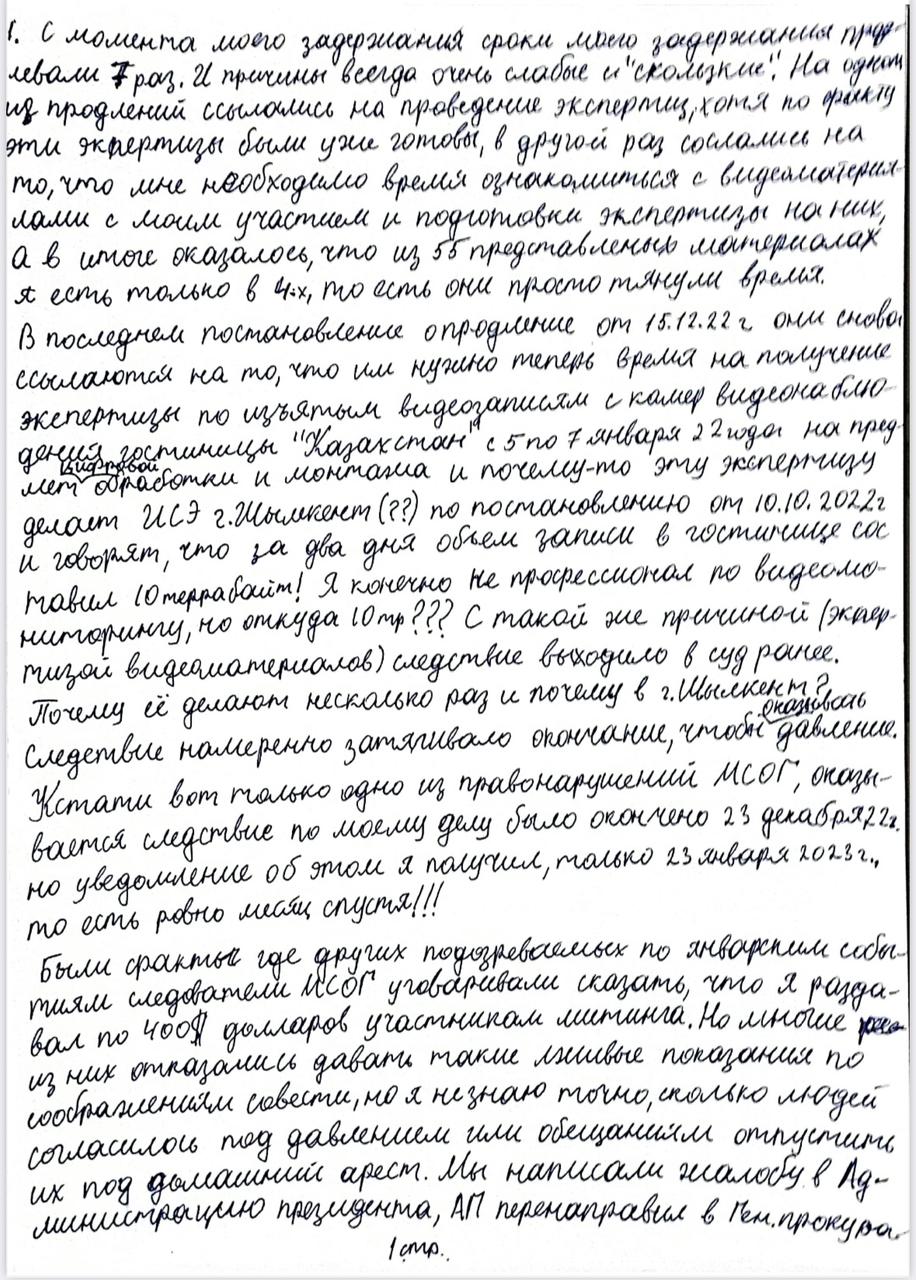 1. С момента моего задержания сроки моего задержания прод-
левали 7 раз. И причины всегда очень слабые и "скользкие". На одном
из продлений ссылались на проведение экспертиз, хотя по факту
эти экпертизы были уже готовы, в другой раз сослались на
то, что мне необходимо время ознакомиться с видеоматериа-
лами с моим участием и подготовки экспертизы на них,
а в итоге оказалось, что из 55 представленых материалах
я есть только в 4-х, то есть они просто тянули время.
В последнем постановление о продление от 15.12.22 г они снова
ссылаются на то, что им нужно теперь время на получение
экспертизы по изъятым видеозаписям с камер видеонаблю-
дений гостиницы "Казахстан" с 5 по 7 января 22 года на пред-
мет цифровой обработки и монтажа и почему-то эту экспертизу
делает ИСЭ г. Шымкент (??) по постановлению от 10.10.2022г
и говорят, что за два дня объем записи в гостинице сос
тавил 10 террабайт! Я конечно не профессионал по видеомо-
ниторингу, но откуда 10 тр??? С такой же причиной (экпер-
тизой видеоматериалов) следствие выходило в суд ранее.
Почему её делают несколько раз и почему в г. Шымкент?
Следствие намеренно затягивало окончание, чтобы оказывать давление.
Кстати вот только одно из правонарушений МСОГ, оказы-
вается следствие по моему делу было окончено 23 декабря 22г.
но уведомление об этом я получил, только 23 января 2023г.,
то есть ровно месяц спустя!!!
Были факты где других подозреваемых по январским собы-
тиям следователи МСОГ уговаривали сказать, что я разда-
вал по 400$ долларов участникам митинга. Но многие
из них отказались давать такие лживые показания по
соображениям совести, но я не знаю точно, сколько людей
согласилось под давлением или обещаниям отпустить
их под домашний арест. Мы написали жалобу в Ад-
министрацию президента, АП перенаправил в Ген. прокура
1 стр.